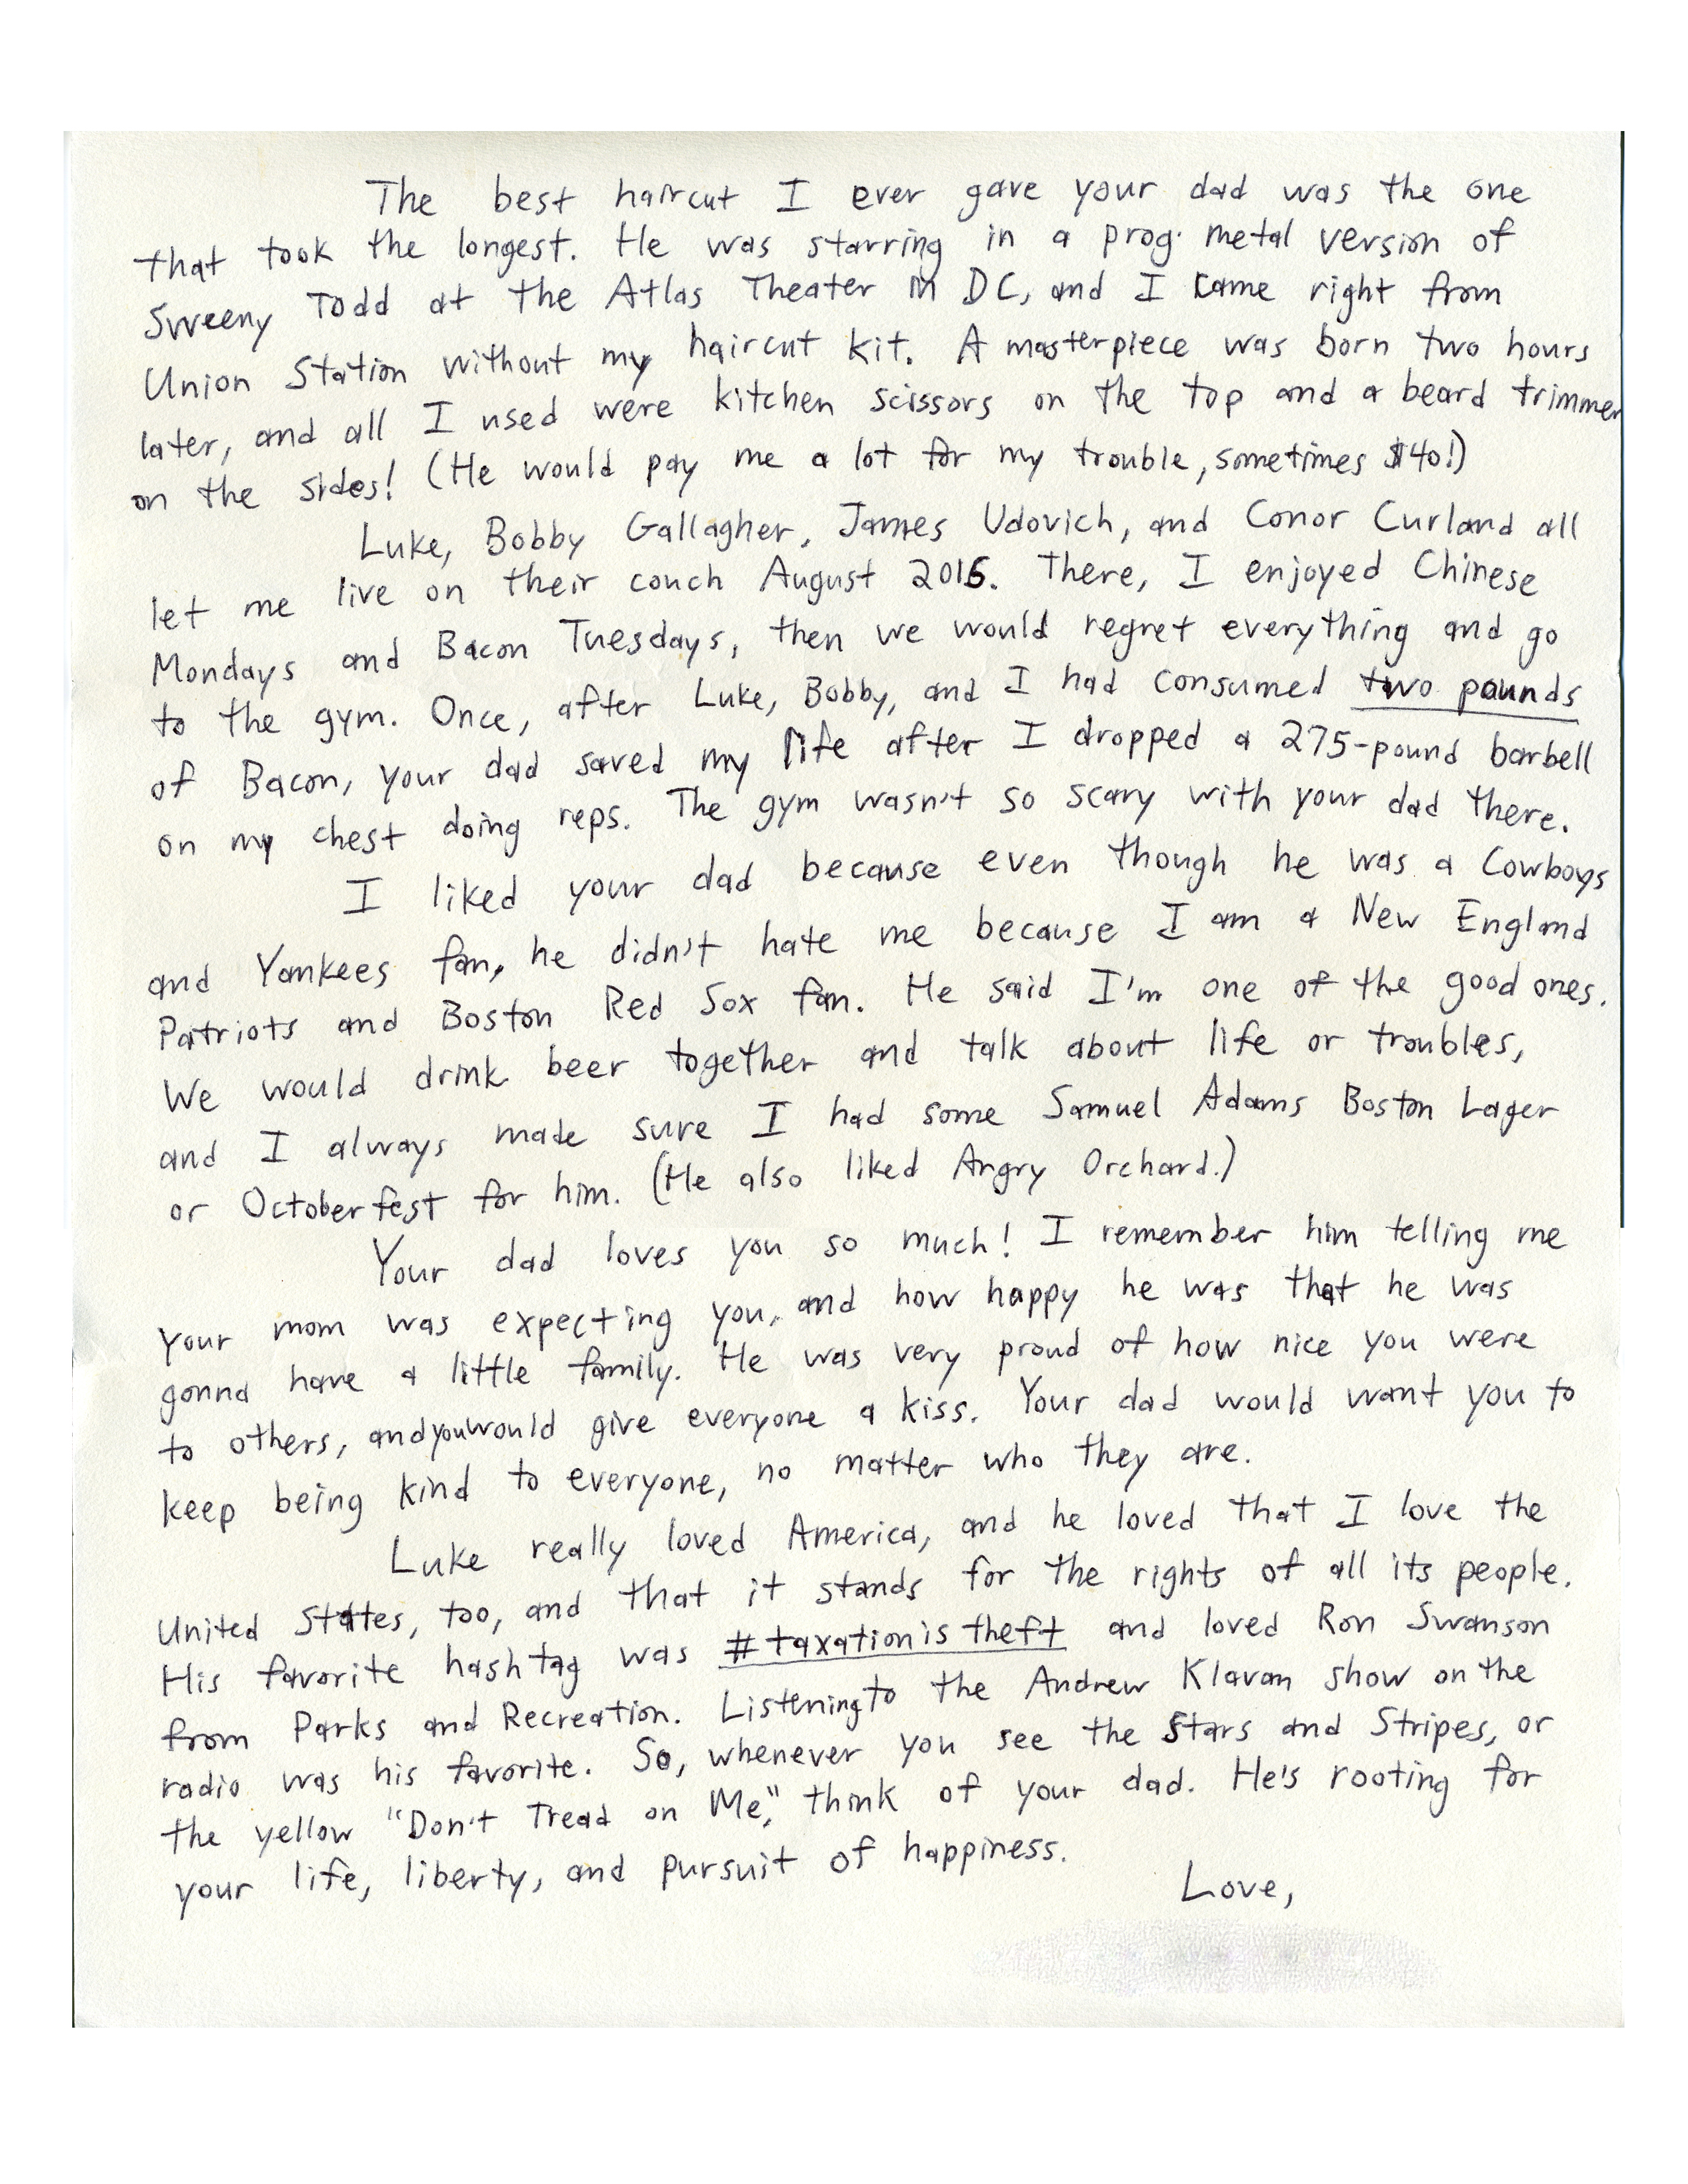 The best haircut I ever gave your dad was the one
that took the longest. He was starring in a prog metal version of
Sweeny Todd at the Atlas Theater in DC, and I came right from
Union Station without my haircut kit. A masterpiece was born two hours
later, and all I used were kitchen scissors on the top and a beard trimmer
on the sides! (He would pay me a lot for my trouble, sometimes $40!)
Luke, Bobby Gallagher, James Udovich, and Conor Curland all
let me live on their couch August 2016. There, I enjoyed Chinese
Mondays and Bacon Tuesdays, then we would regret everything and go
to the gym. Once, after Luke, Bobby, and I had consumed two pounds
of Bacon, your dad saved my life after I dropped a 275-pound barbell
on my chest doing reps. The gym wasn't so scary with your dad there.
I liked your dad because even though he was a Cowboys
and Yankees fan, he didn't hate me because I am a New England
Patriots and Boston Red Sox fan. He said I'm one of the good ones.
We would drink beer together and talk about life or troubles,
and I always made sure I had some Samuel Adams Boston Lager
or Octoberfest for him. (He also liked Angry Orchard.)
Your dad loves you so much! I remember him telling me
your mom was expecting you, and how happy he was that he was
gonna have a little family. He was very proud of how nice you were
to others, and you would give everyone a kiss. Your dad would want you to
keep being kind to everyone, no matter who they are.
Luke really loved America, and he loved that I love the
United States, too, and that it stands for the rights of all its people.
His favorite hashtag was #taxationistheft and loved Ron Swanson
from Parks and Recreation. Listening to the Andrew Klavan show on the
radio was his favorite. So, whenever you see the Stars and Stripes, or
the yellow "Don't Tread on Me," think of your dad. He's rooting for
your life, liberty, and pursuit of happiness.
Love,